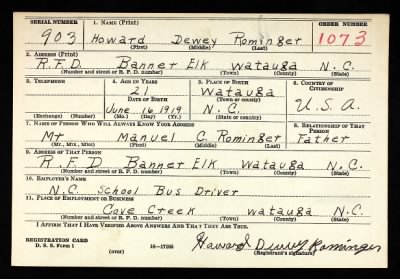 SERIAL NUMBER 1. NAME (Print) ORDER NUMBER
903 Howard Dewey Rominger 1073
(First) (Middle) (Last)
2. ADDRESS (Print)
R.F.D. Banner Elk Watauga N.C.
(Number and street or R. F. D. number) (Town) (County) (State)
3. TELEPHONE 4. AGE IN YEARS 5. PLACE OF BIRTH 6. COUNTRY OF CITIZENSHIP
21 Watauga
DATE OF BIRTH (Town or county)
June 16, 1919 N.C. U.S.A.
(Exchange) (Number) (Mo.) (Day) (Yr.) (State or country)
7. NAME OF PERSON WHO WILL ALWAYS KNOW YOUR ADDRESS 8. RELATIONSHIP OF THAT PERSON
Mr Manuel C. Rominger Father
(Mr., Mrs., Miss) (First) (Middle) (Last)
9. ADDRESS OF THAT PERSON
R.F.D Banner Elk Watauga N.C.
(Number and street or R. F. D. number) (Town) (County) (State)
10. EMPLOYER'S NAME
N.C. School Bus Driver
11. PLACE OF EMPLOYMENT OR BUSINESS
Cove Creek Watauga N.C.
(Number and street or R. F. D. number) (Town) (County) (State)
I AFFIRM THAT I HAVE VERIFIED ABOVE ANSWERS AND THAT THEY ARE TRUE.
REGISTRATION CARD
D. S. S. Form 1 (over) 16—17105 Howard Dewey Rominger
(Registrant's signature)